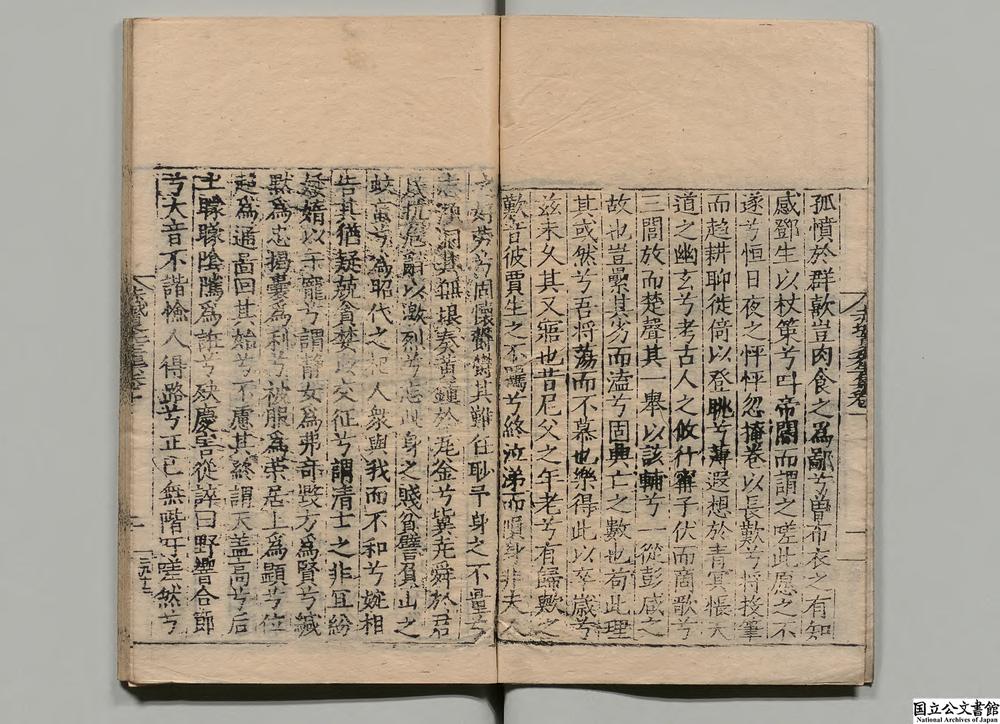 孤憤於群歎豈肉食之爲鄙兮曽布衣之有知
感鄧生以杖策兮叫帝閽而謂之嗟此愿之不
遂兮恒日夜之怦怦忽掩卷以長歎兮将投筆
而趍耕聊徙倚以登眺兮薄遐想於青冥悵天
道之幽玄兮考古人之攸行甯子伏而商歌兮
三閭放而楚聲其一舉以該輔兮一從彭咸之
故也豈纍其劣而溘兮固興亡之數也苟此理
其或然兮吾将蕩而不慕也樂得此以卒歲兮
玆未久其又寤也昔尼父之年老兮有歸歟之
歎昔彼賈生之不遇兮終泣涕而隕身非夫人
兮固懷欝欝其難任耻予身之不量兮
澒洞其無垠奏黄鍾於瓦釜兮冀尭舜於君
抗危辭以激列兮忘此身之賤貧譬負山之
蚊䖟兮爲昭代之人衆與我而不和兮婉相
告其猶疑兢貪婪以交征兮謂清士之非冝紛
婞婧以予寵兮謂靜女爲弗奇毀方爲賢兮緘
黙爲忠揚囊爲利兮被服爲栄居上爲顕兮位
超爲通啚回其始兮不慮其終謂天盖高兮后
土矇矇隂隲爲誑兮殃慶害從誶曰野響合節
兮大音不諧憸人得路兮正已無階吁嗟然兮
国立公文書館
National Archives of Japan